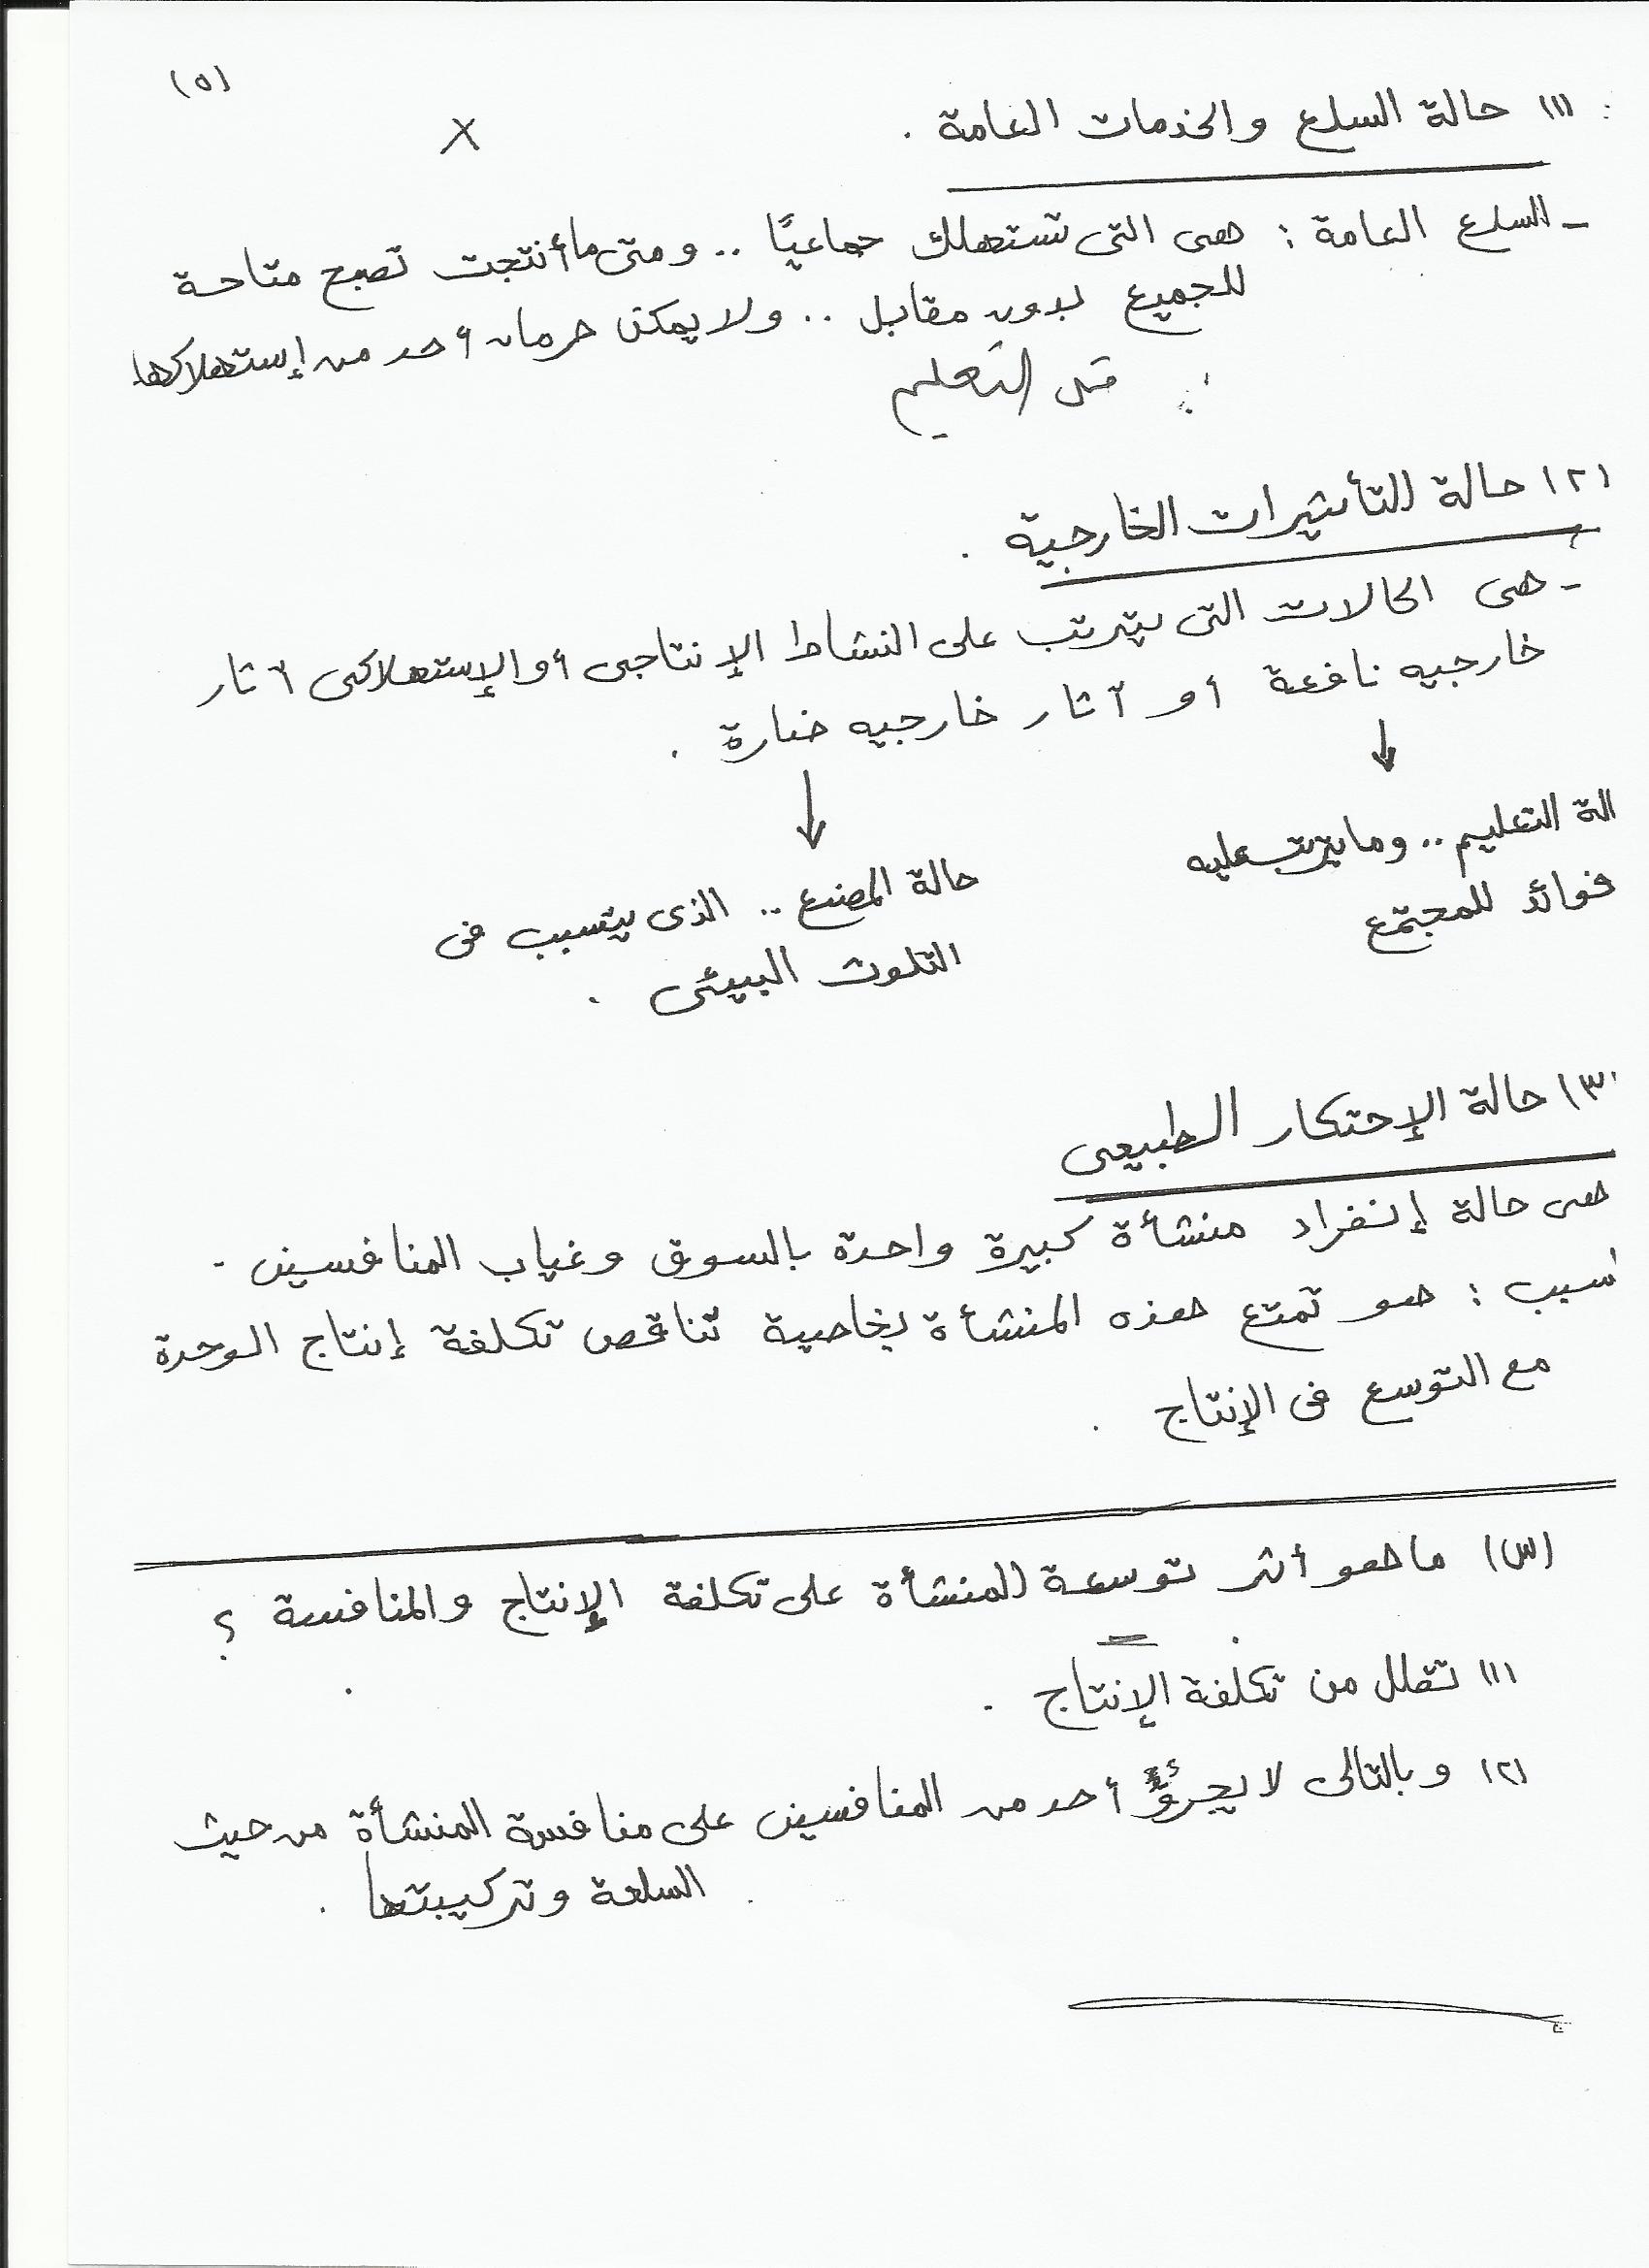 (٥)
(١) حالة السلع والخدمات العامة .
X
- السلع العامة : هى التى تستهلك جماعيًا .. ومتى ما أنتجت تصبح متاحة
للجميع بدون مقابل .. ولا يمكن حرمان أحد من إستهلاكها
مثل التعليم
(٢) حالة التأثيرات الخارجية .
- هى الحالات التى يترتب على النشاط الإنتاجى أو الإستهلاكى آثار
خارجيه نافعة أو آثار خارجيه ضارة .
↓ ↓
الة التعليم .. وما يترتب عليه
فوائد للمجتمع
حالة المصنع .. الذى يتسبب فى
التلوث البيئى .
(٣) حالة الإحتكار الطبيعى
هى حالة إنفراد منشأة كبيرة واحدة بالسوق وغياب المنافسين .
سبب : هو تمتع هذه المنشأة بخاصية تناقص تكلفة إنتاج الوحدة
مع التوسع فى الإنتاج .
(س) ما هو أثر توسعة المنشأة على تكلفة الإنتاج والمنافسة ؟
(١) تقلل من تكلفة الإنتاج .
(٢) وبالتالى لا يجرؤ أحد من المنافسين على منافسة المنشأة من حيث
السلعة وتركيبتها .